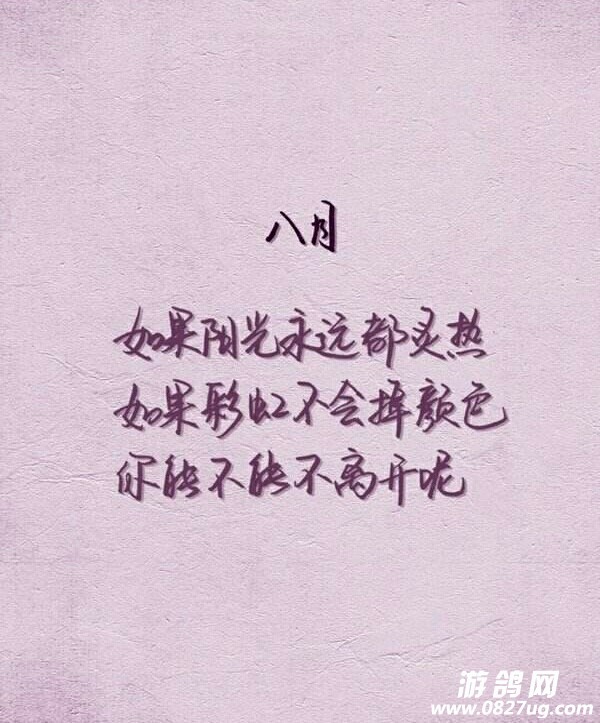 八月
如果阳光永远都炙热
如果彩虹不会掉颜色
你能不能不离开呢
游鸽网
www.0827ug.com